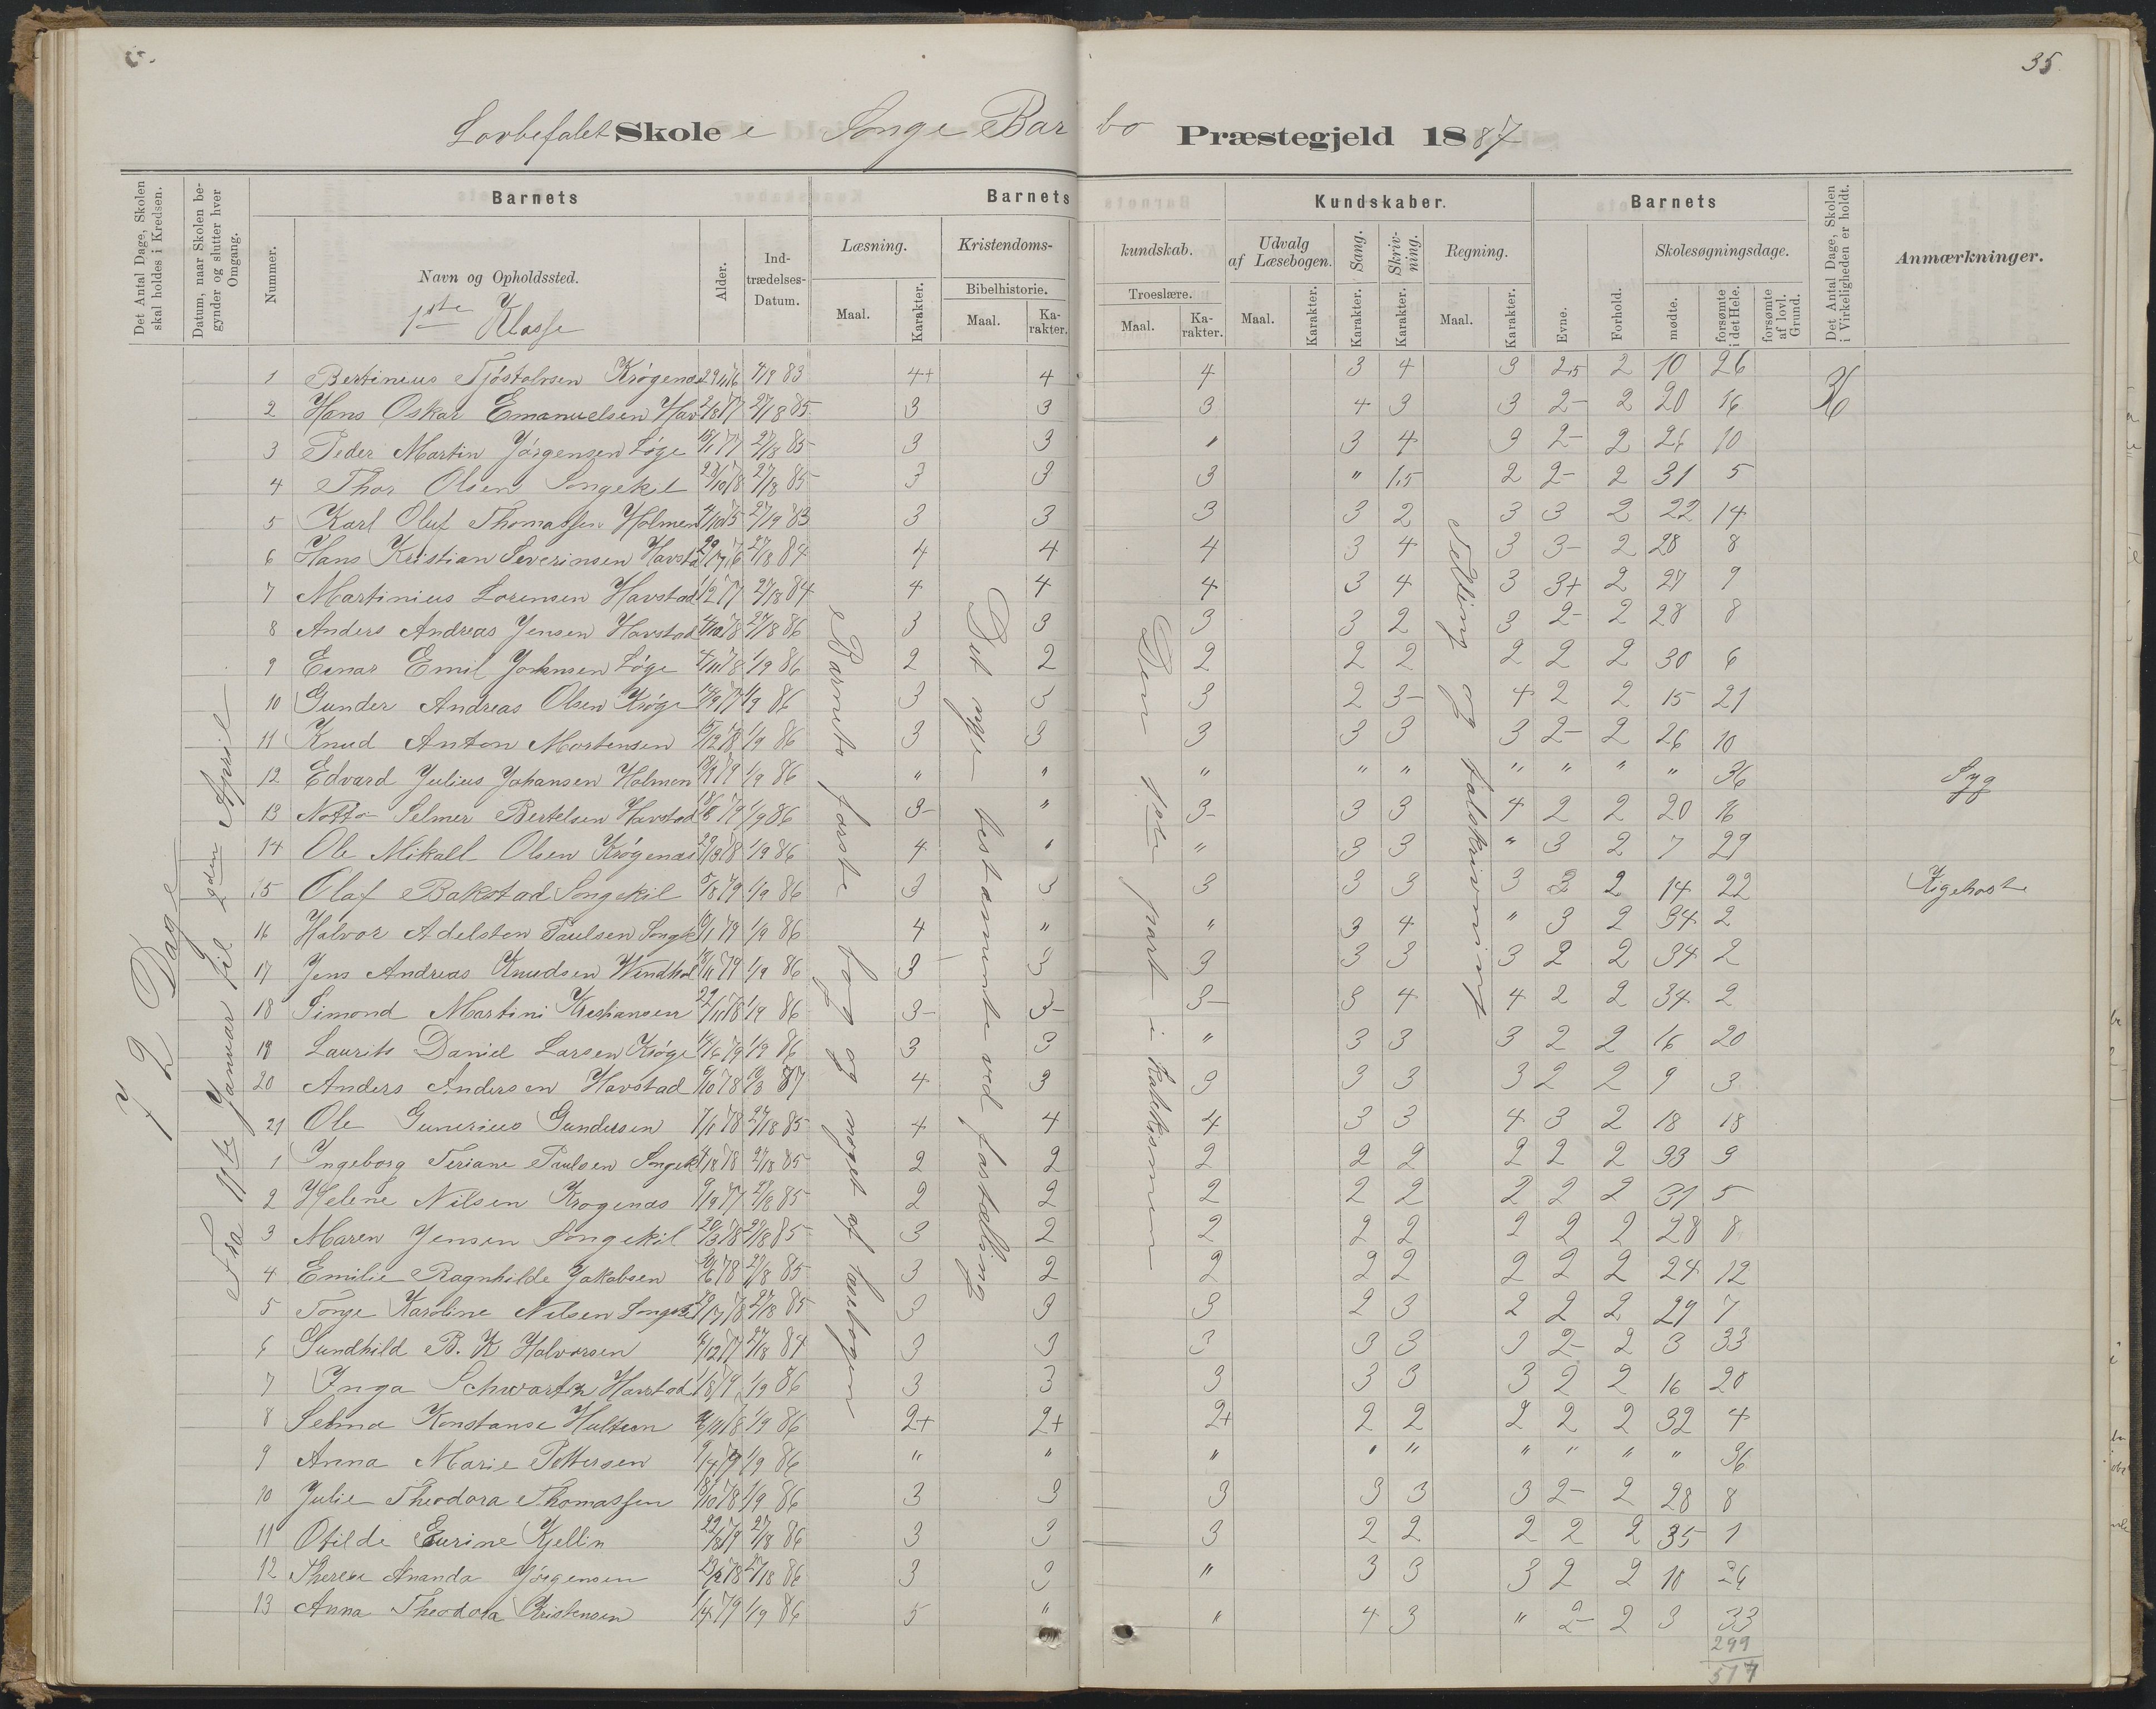 35
Lovbefalet Skole i Songe Barbo Præstegjeld 1887
Det Antal Dage, Skolen skal holdes i Kredsen.
Datum, naar Skolen begynder og slutter hver Omgang.
Barnets
Nummer.
Navn og Opholdssted.
1ste Klasse
Alder.
Indtrædelses-Datum.
Barnets Kundskaber.
Læsning.
Maal.
Karakter.
Kristendomskundskab.
Bibelhistorie.
Maal.
Karakter.
Troeslære.
Maal.
Karakter.
Udvalg af Læsebogen.
Maal.
Karakter.
Sang.
Karakter.
Skrivning.
Karakter.
Regning.
Maal.
Karakter.
Barnets
Evne.
Forhold.
Skolesøgningsdage.
mødte.
forsømte i det Hele.
forsømte af lovl. Grund.
Det Antal Dage, Skolen i Virkeligheden er holdt.
Anmærkninger.
72 Dage
Fra 11te Januar til den April
Barnets første bog og noget af læsebogen
Det nye testamente ved fortælling
Den 1ste part i Katekismen
Tælling og talskrivning
36
1 Bertinius Tjøstolvsen Krøgenæs 7/9 83 4+ 4 4 3 4 3 2,5 2 10 26
2 Hans Oskar Emanuelsen Hav 27/8 85 3 3 3 4 3 3 2- 2 20 16
3 Peder Martin Jørgensen Løge 27/8 85 3 3 " 3 4 3 2- 2 26 10
4 Thor Olsen Songekil 23/10 78 27/8 85 3 3 3 " 1,5 2 2- 2 31 5
5 Karl Oluf Thomassen Holmen 27/9 83 3 3 3 3 2 3 3 2 22 14
6 Hans Kristian Severinsen Havsta 27/8 84 4 4 4 3 4 3 3- 2 28 8
7 Martinius Lorensen Havstad 1/2 77 27/8 84 4 4 4 3 4 3 3+ 2 27 9
8 Anders Andreas Jensen Havstad 27/8 86 3 3 3 3 2 3 2- 2 28 8
9 Einar Emil Johnsen Løge 1/9 86 2 2 2 2 2 2 2 2 30 6
10 Gunder Andreas Olsen Krøge 1/9 86 3 3 3 2 3- 4 2 2 15 21
11 Knud Anton Mortensen 1/9 86 3 3 3 3 3 3 2- 2 26 10
12 Edvard Julius Johansen Holmen 1/9 86 " " " " " " " " " 36 Syg
13 Notto Selmer Bertelsen Havstad 1/9 86 3- " 3- 3 3 4 2 2 20 16
14 Ole Mikall Olsen Krøgenæs 1/9 86 4 " " 3 3 " 3 2 7 29
15 Olaf Bakstad Songekil 5/8 79 1/9 86 3 3 3 3 3 3 3 2 14 22 Kigehoste
16 Halvor Adelsten Paulsen Songk 1/9 86 4 " " 3 4 " 3 2 34 2
17 Jens Andreas Knudsen Windhol 1/9 86 3 3 3 3 3 3 2 2 34 2
18 Simond Martini Kristiansen 22/11 78 1/9 86 3- 3- 3- 3 4 4 2 2 34 2
19 Laurits Daniel Larsen Krøge 1/9 86 3 3 " 3 3 3 2 2 16 20
20 Anders Andersen Havstad 87 4 3 3 3 3 3 2 2 9 3
21 Ole Gunerius Gundersen 27/8 85 4 4 4 3 3 4 3 2 18 18
1 Ingeborg Teriane Paulsen Songek 27/8 85 2 2 2 2 2 2 2 2 33 3
2 Helene Nilsen Krogenæs 27/8 85 2 2 2 2 2 2 2 2 31 5
3 Maren Jensen Songekil 20/3 78 27/8 85 3 2 2 2 2 2 2 2 28 8
4 Emilie Ragnhilde Jakobsen 27/8 85 3 2 2 2 2 2 2 2 24 12
5 Tonge Karoline Nilsen Songe 27/8 85 3 3 3 2 3 2 2 2 29 7
6 Gundhild B. K Halvorsen 27/8 84 3 3 3 3 3 3 2- 2 3 33
7 Inga Schwartz Havstad 1/9 86 3 3 3 3 3 3 2 2 16 20
8 Selma Konstanse Hultern 1/9 86 2+ 2+ 2+ 2 2 2 2 2 32 4
9 Anna Marie Pettersen 1/9 86 " " " " " " " " " 36
10 Julie Theodora Thomassen 18/10 78 1/9 86 3 3 3 3 3 3 2- 2 28 8
11 Otilde Eurine Kjellin 27/8 86 3 3 3 2 2 2 2 2 35 1
12 Therese Ananda Jørgensen 27/8 86 3 3 " 3 3 3 2 2 10 26
13 Anna Theodora Kristensen 1/4 79 1/9 86 5 " " 4 3 " 2- 2 3 33
299
517